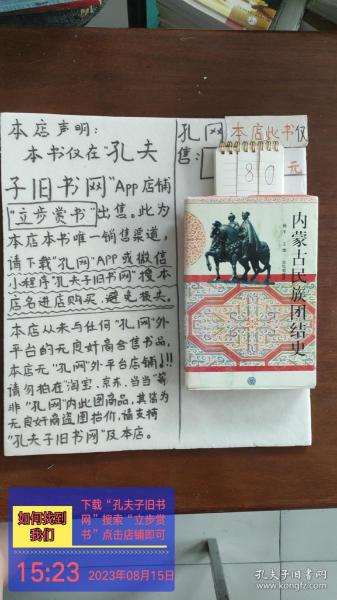 本店声明：
本书仅在“孔夫
子旧书网”App店铺
“立步赏书”出售。此为
本店本书唯一销售渠道，
请下载“孔网”APP或微信
小程序“孔夫子旧书网”搜本
店名进店购买，避免换头。
本店从未与任何“孔网”外
平台的无良奸商合售书品，
本店无“孔网”外平台店铺！！！
请勿拍在“淘宝、京东、当当”等
非“孔网”内此图商品，其皆为
无良奸商盗图抬价，请支持
“孔夫子旧书网”及本店。
孔网本店此书仅
售：
80元
内蒙古民族团结史
如何找到
我们
下载“孔夫子旧书
网”搜索“立步赏
书”点击店铺即可
15:23
2023年08月15日
孔夫子旧书网
www.kongfz.com